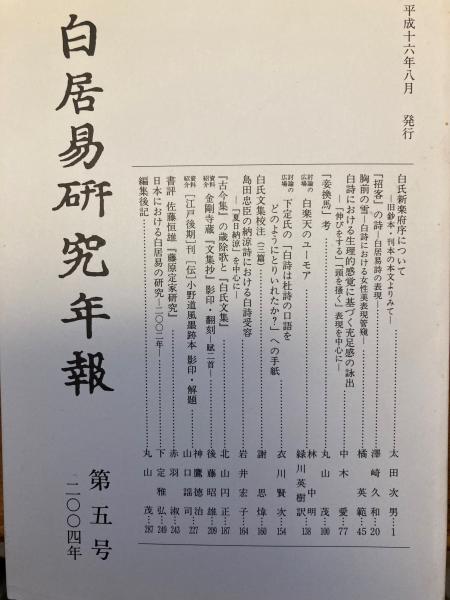 平成十六年八月　発行
白氏新楽府序について
―旧鈔本・刊本の本文よりみて―……太田次男…1
『招客』の詩―白居易詩の表現―……澤崎久和…20
胸前の雪―白詩における女性美表現管窺―……橘英範…45
白詩における生理的感覚に基づく充足感の詠出
―「伸びをする」「頭を掻く」表現を中心に―……中木愛…77
「妾換馬」考……丸山茂…100
討論の広場 白楽天のユーモア……林中明 緑川英樹訳…138
討論の広場 下定氏の「白詩は杜詩の口語を
どのようにとりいれたか?」への手紙……衣川賢次…154
白氏文集校注(三篇)……謝思煒…160
島田忠臣の納涼詩における白詩受容
―「夏日納涼」を中心に―……岩井宏子…164
『古今集』の歳除歌と『白氏文集』……北山円正…187
資料紹介 金剛寺蔵『文集抄』影印・翻刻―賦二首―……後藤昭雄…209
資料紹介 [江戸後期]刊 [伝]小野道風墨跡本 影印・解題……神鷹徳治 山口謠司…227
書評 佐藤恒雄『藤原定家研究』……赤羽淑…243
日本における白居易の研究―二〇〇二年―……下定雅弘…249
編集後記……丸山茂…287
白居易研究年報
第五号
二〇〇四年